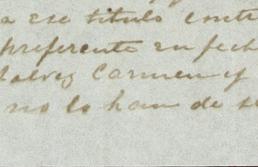 a ese titulo contr
preferente en fech
Galvez Carmen y
no lo han de se